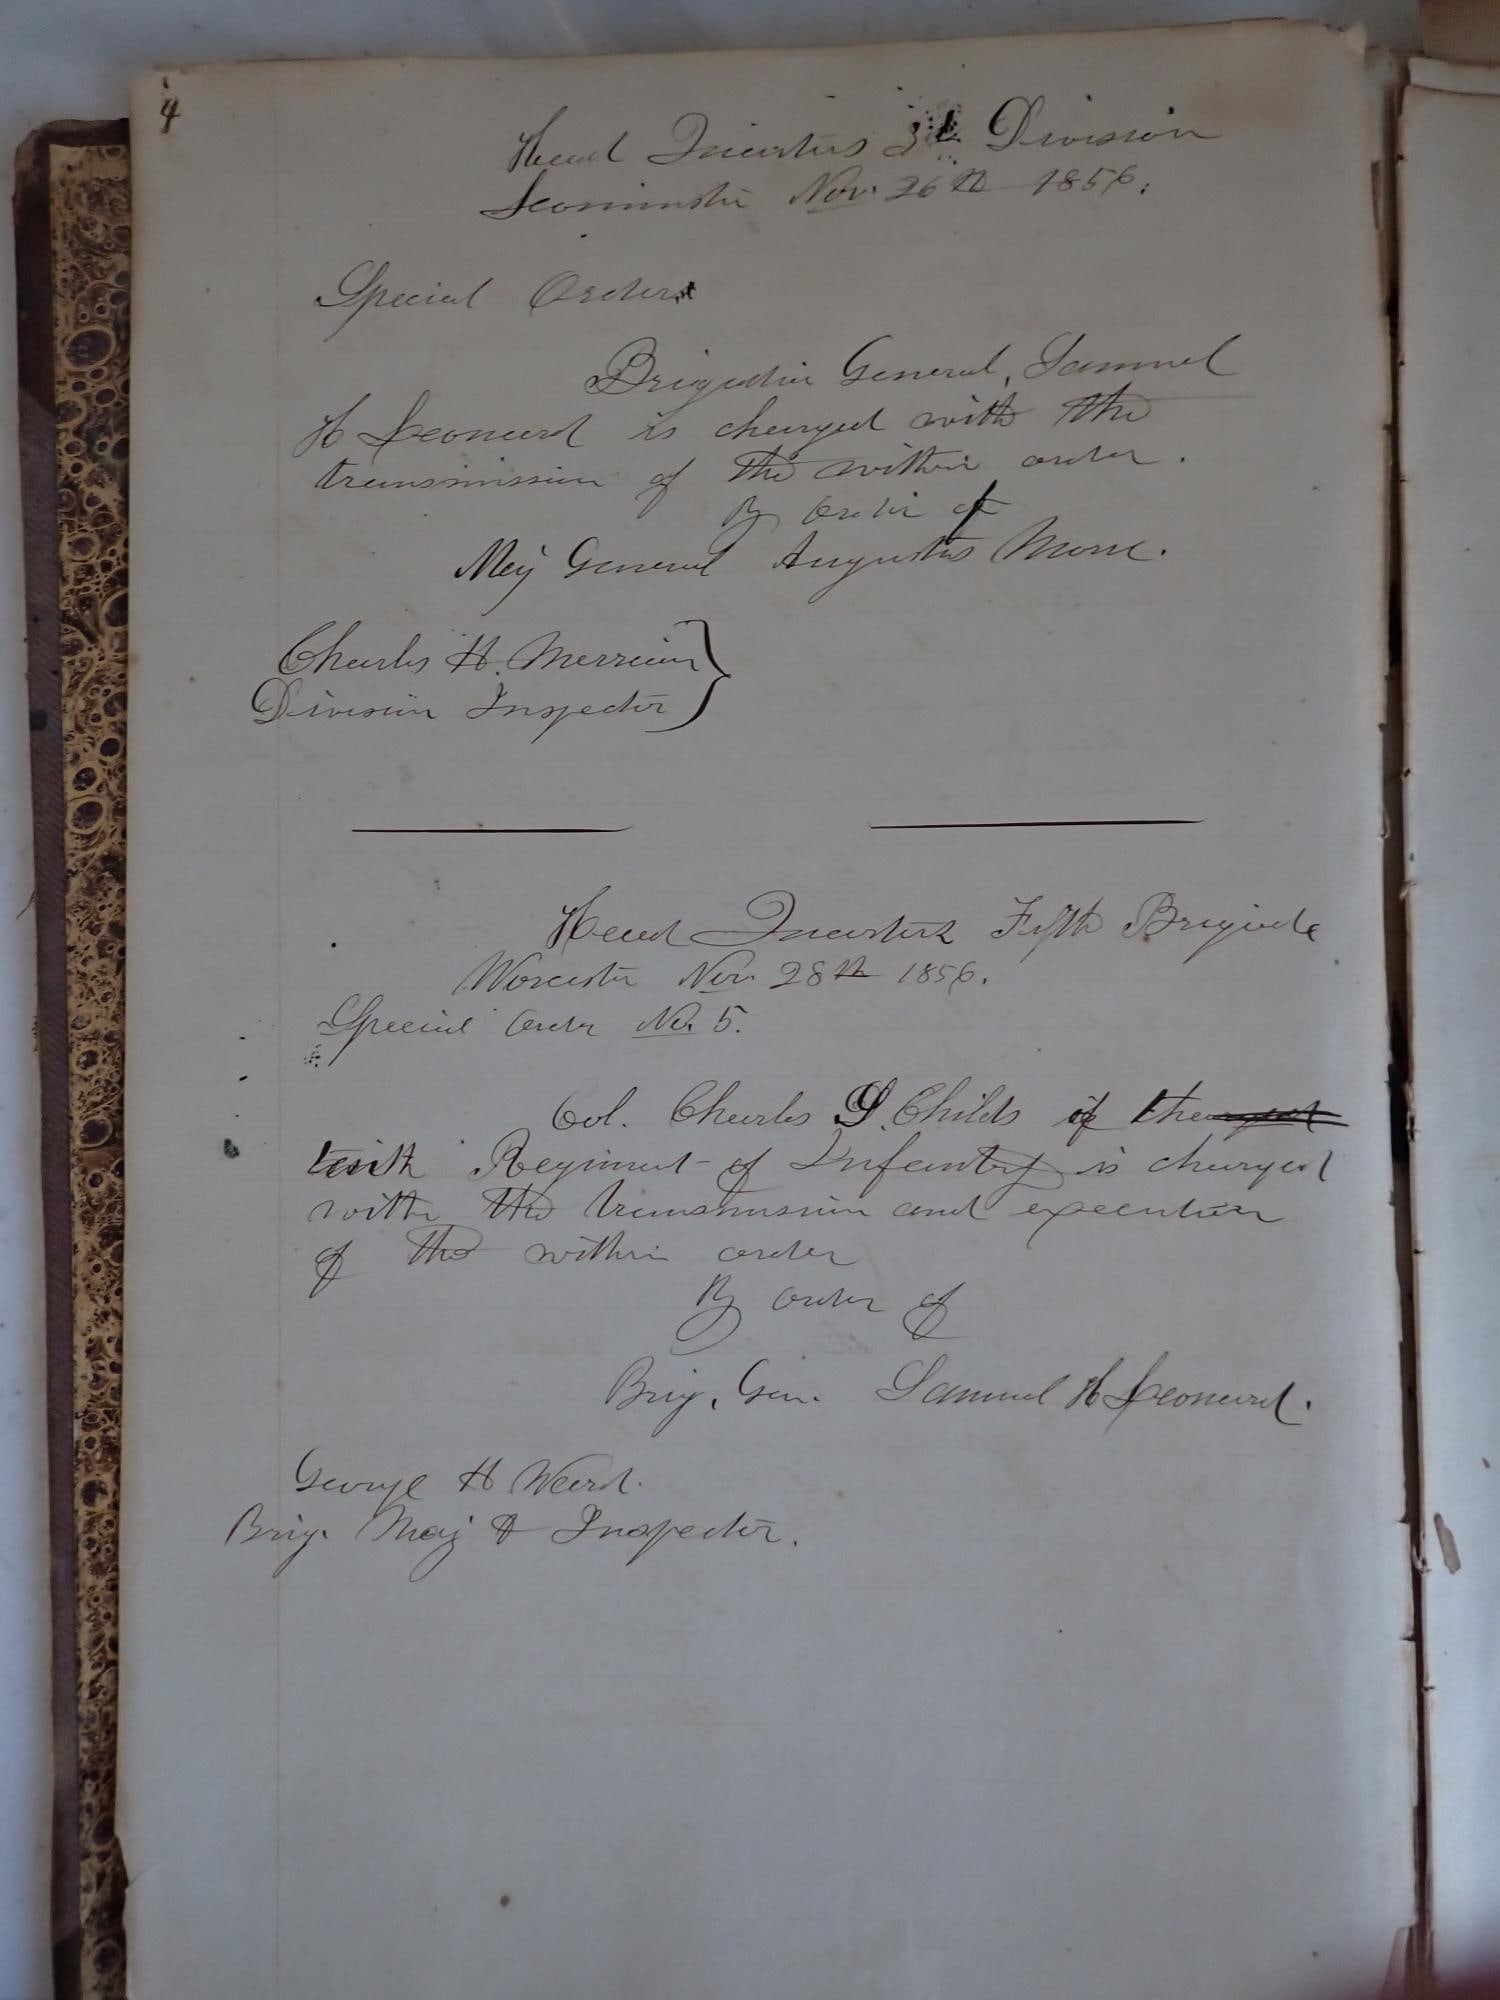 4
Head Quarters 3d Division
Leominster Nov. 26th 1856.
Special Order
Brigadier General, Samuel
H Leonard is charged with the
transmission of the within order.
By Order of
Maj General Augustus Morse.
Charles H. Merriam
Division Inspector
Head Quarters Fifth Brigade
Worcester Nov. 28th 1856.
Special Order No. 5.
Col. Charles S. Childs of the
tenth Regiment of Infantry is charged
with the transmission and execution
of the within order
By order of
Brig. Gen. Samuel H Leonard.
George H Ward.
Brig. Maj & Inspector.